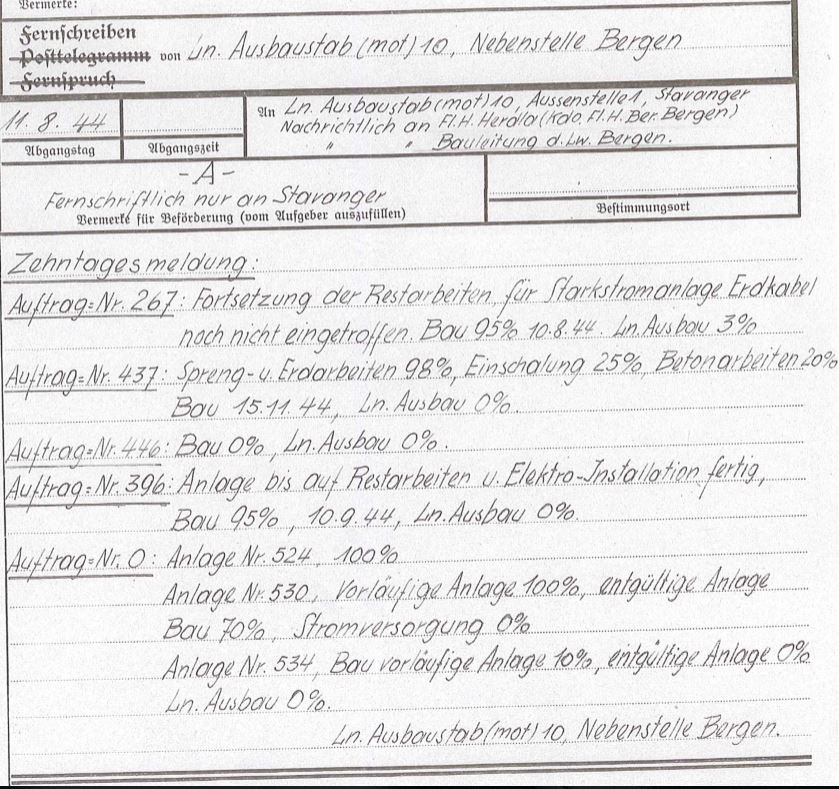 Vermerke:
Fernschreiben
Posttelegramm von Ln. Ausbaustab (mot) 10, Nebenstelle Bergen
Fernspruch
11. 8. 44
Abgangstag
Abgangszeit
An Ln. Ausbaustab (mot) 10, Aussenstelle 1, Stavanger
Nachrichtlich an Fl.H. Herdla (Kdo. Fl.H. Ber. Bergen)
" " Bauleitung d. Lw. Bergen.
-A-
Fernschriftlich nur an Stavanger
Vermerke für Beförderung (vom Aufgeber auszufüllen)
Bestimmungsort
Zehntagesmeldung:
Auftrag=Nr. 267: Fortsetzung der Restarbeiten für Starkstromanlage Erdkabel
noch nicht eingetroffen. Bau 95% 10.8.44. Ln. Ausbau 3%
Auftrag=Nr. 437: Spreng- u. Erdarbeiten 98%, Einschalung 25%, Betonarbeiten 20%
Bau 15.11.44, Ln. Ausbau 0%.
Auftrag=Nr. 446: Bau 0%, Ln. Ausbau 0%.
Auftrag=Nr. 396: Anlage bis auf Restarbeiten u. Elektro-Installation fertig,
Bau 95%, 10.9.44, Ln. Ausbau 0%.
Auftrag=Nr. 0: Anlage Nr. 524, 100%
Anlage Nr. 530, Vorläufige Anlage 100%, entgültige Anlage
Bau 70%, Stromversorgung 0%
Anlage Nr. 534, Bau vorläufige Anlage 10%, entgültige Anlage 0%
Ln. Ausbau 0%.
Ln. Ausbaustab (mot) 10, Nebenstelle Bergen.